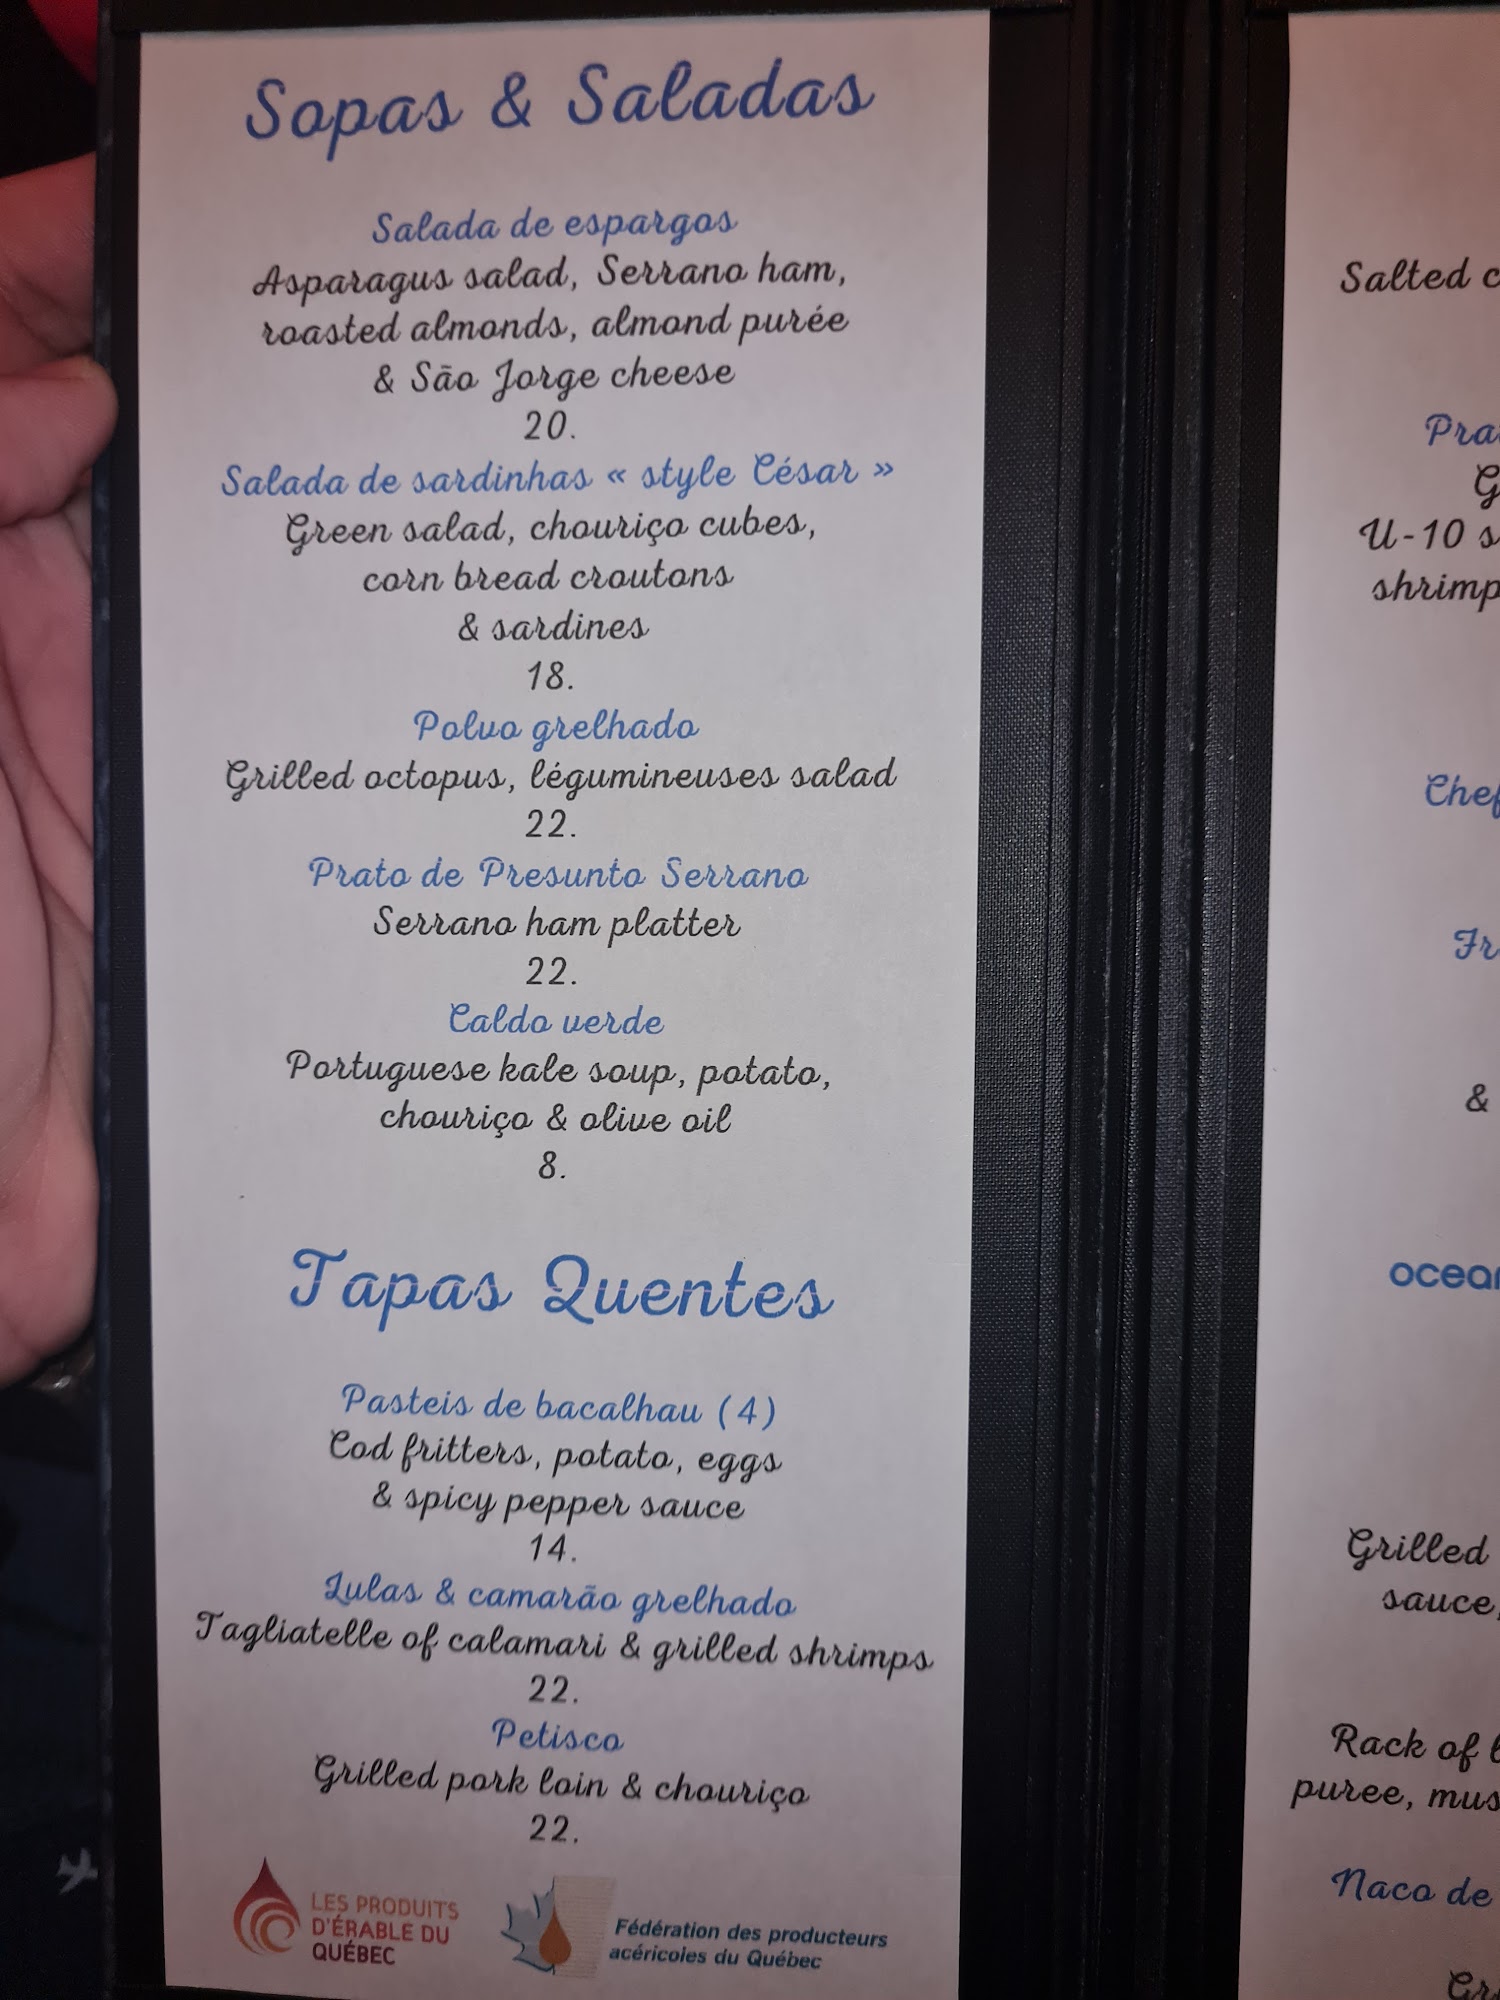 Sopas & Saladas
Salada de espargos
Asparagus salad, Serrano ham,
roasted almonds, almond purée
& São Jorge cheese
20.
Salada de sardinhas « style César »
Green salad, chouriço cubes,
corn bread croutons
& sardines
18.
Polvo grelhado
Grilled octopus, légumineuses salad
22.
Prato de Presunto Serrano
Serrano ham platter
22.
Caldo verde
Portuguese kale soup, potato,
chouriço & olive oil
8.
Tapas Quentes
Pasteis de bacalhau (4)
Cod fritters, potato, eggs
& spicy pepper sauce
14.
Lulas & camarão grelhado
Tagliatelle of calamari & grilled shrimps
22.
Petisco
Grilled pork loin & chouriço
22.
LES PRODUITS
D'ÉRABLE DU
QUÉBEC
Fédération des producteurs
acéricoles du Québec
Salted
U-10
shrimp
&
Grilled
sauce,
Rack of
puree,
Naco de